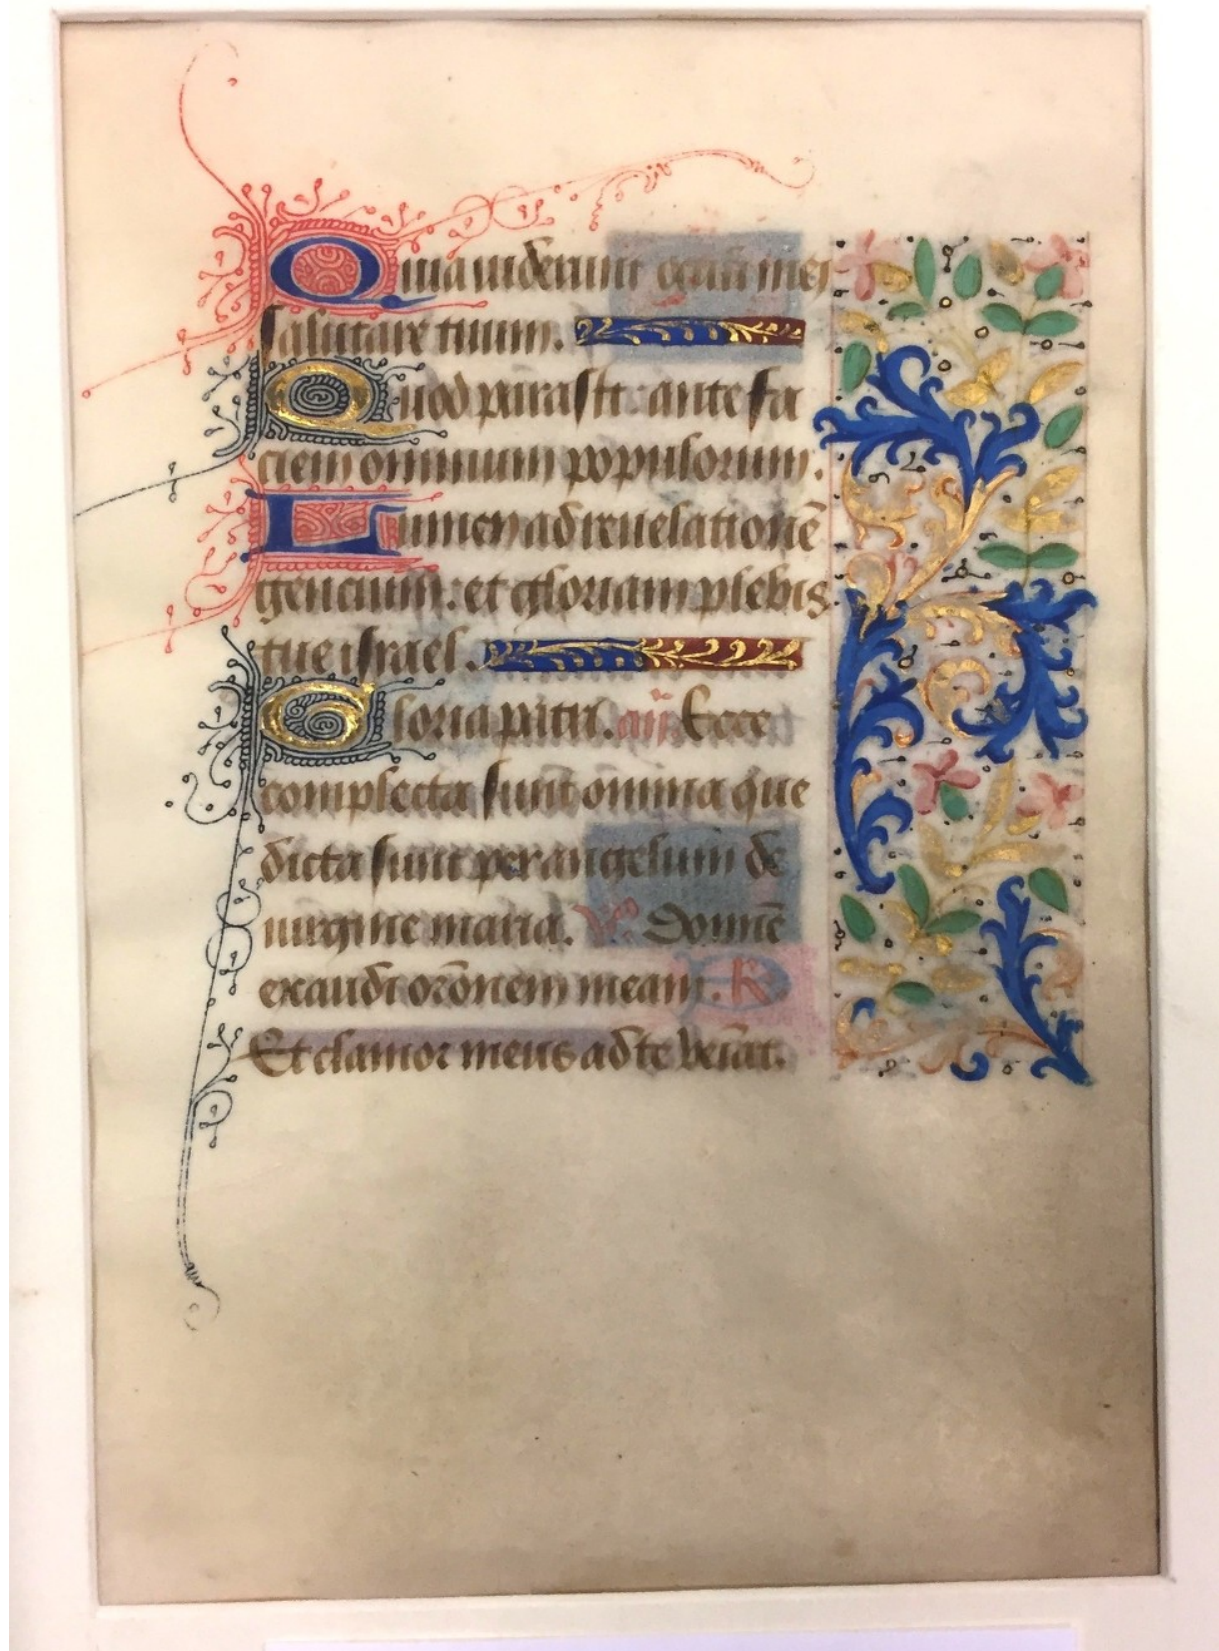 Quia uiderunt oculi mei
salutare tuum.
Quod parasti: ante fa
ciem omnium populorum.
Lumen ad reuelationē
gencium: et gloriam plebis
tue israel.
Gloria patri. añ Ecce
complecta sunt omnia que
dicta sunt per angelum de
uirgine maria. Domine
exaudi orōnem meam. R
Et clamor meus ad te veniat.